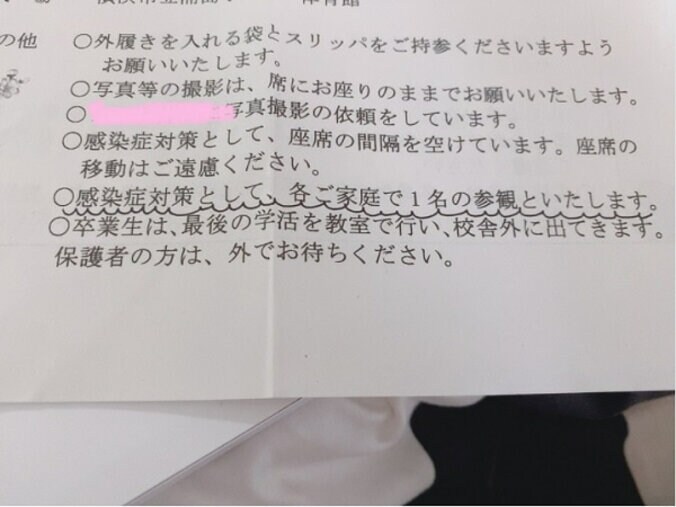 体育館
の他 ○外履きを入れる袋とスリッパをご持参くださいますよう
お願いいたします。
○写真等の撮影は、席にお座りのままでお願いいたします。
○ 写真撮影の依頼をしています。
○感染症対策として、座席の間隔を空けています。座席の
移動はご遠慮ください。
○感染症対策として、各ご家庭で1名の参観といたします。
○卒業生は、最後の学活を教室で行い、校舎外に出てきます。
保護者の方は、外でお待ちください。